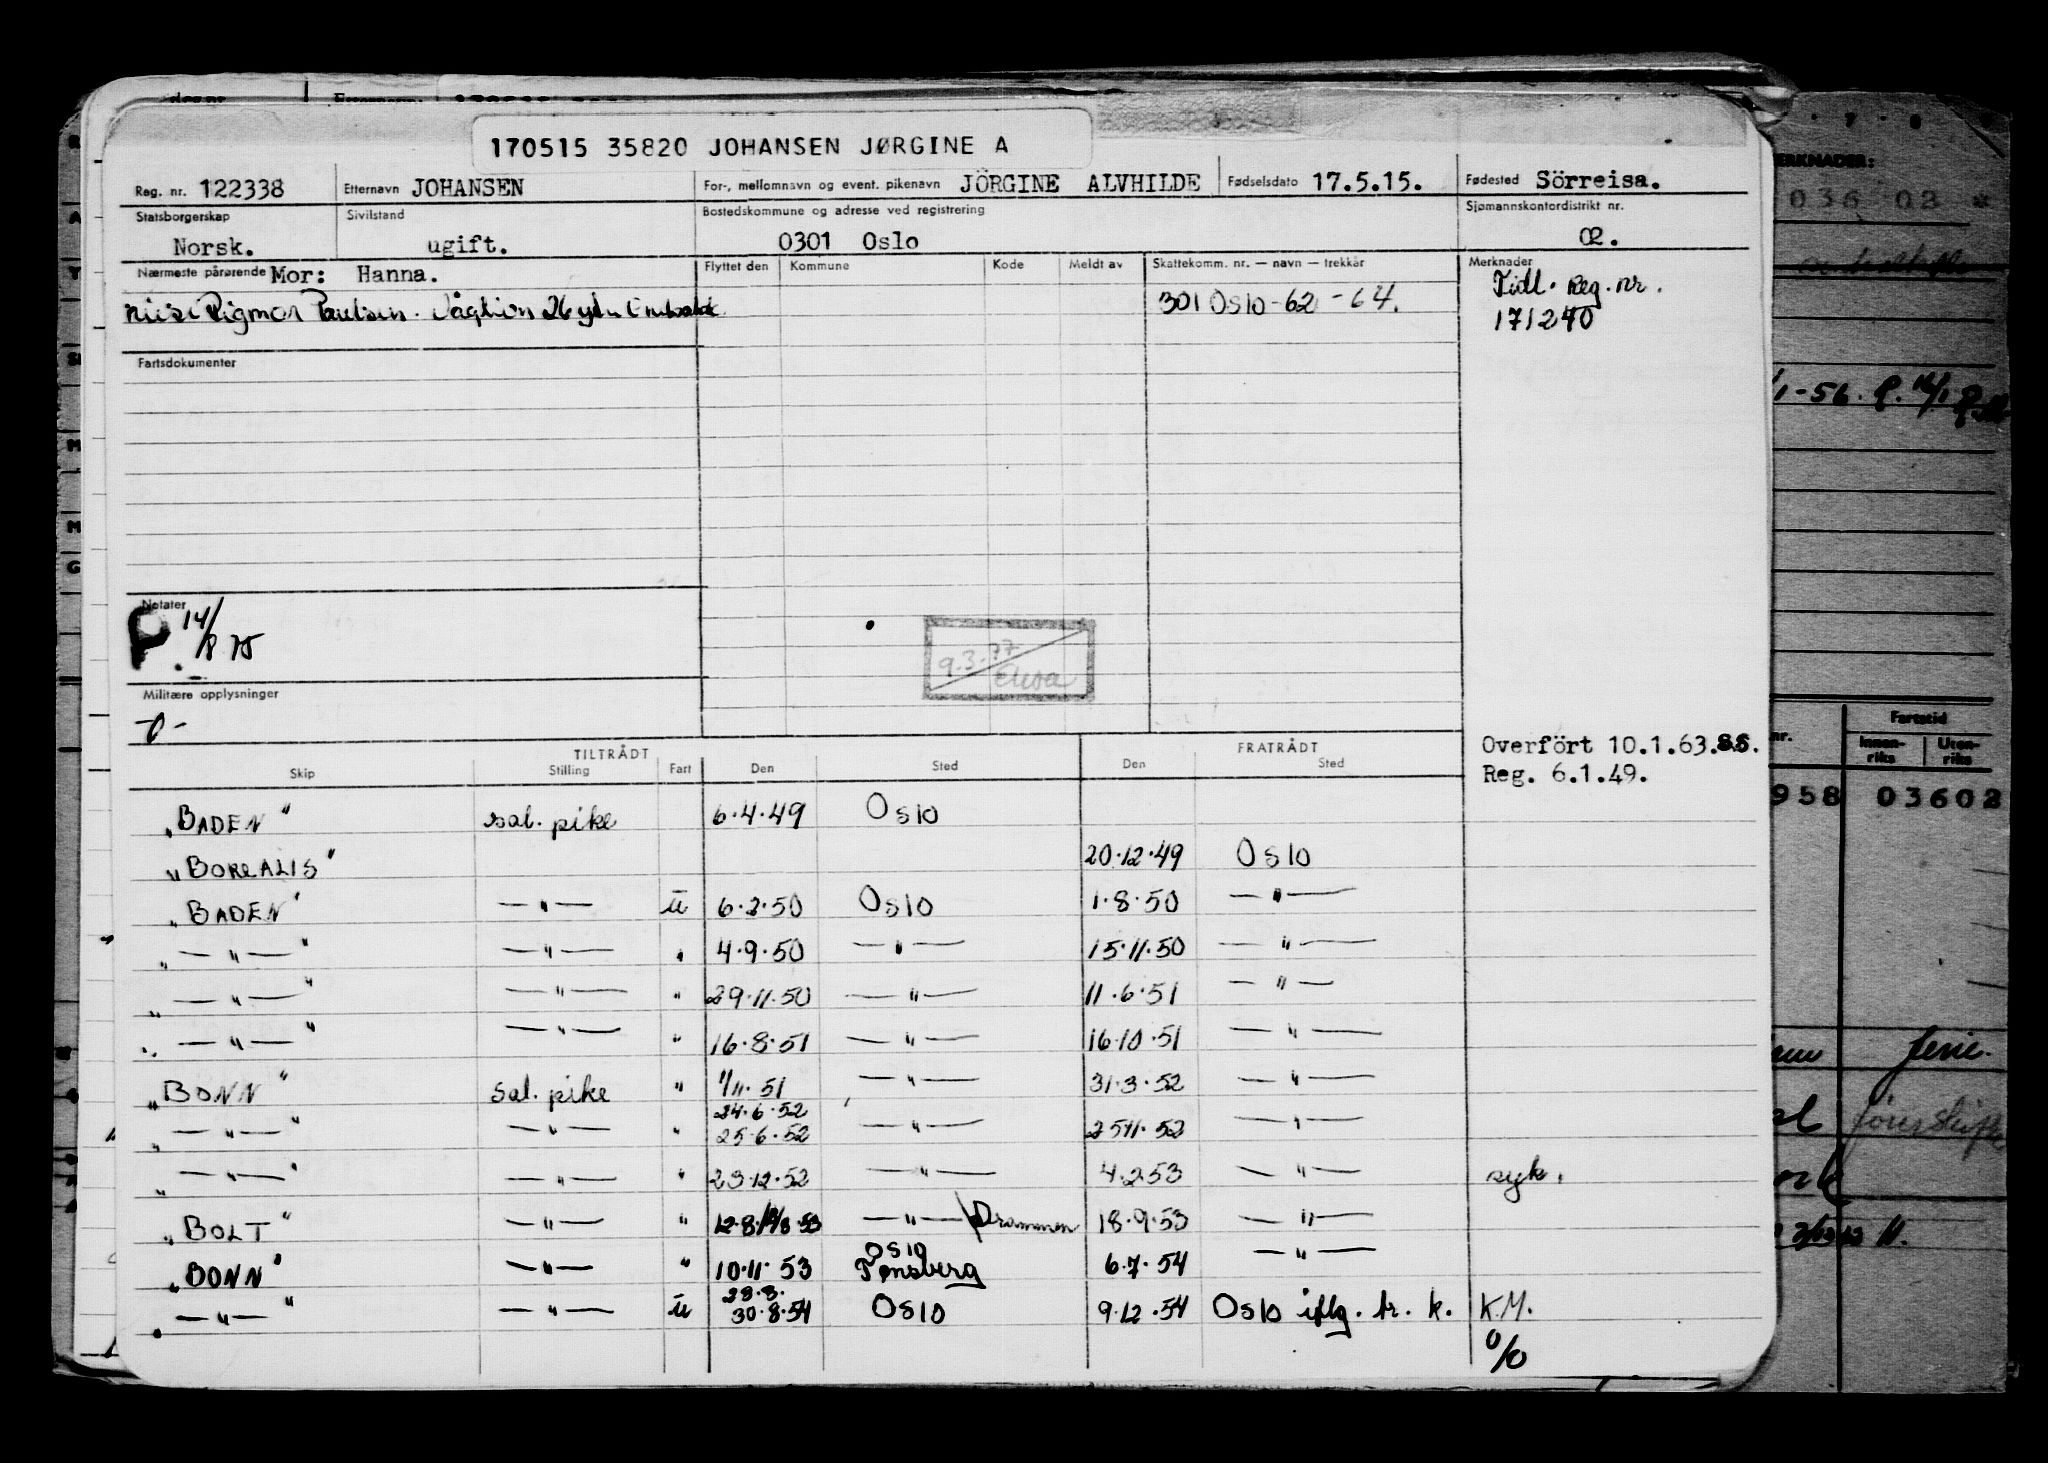 170515 35820 JOHANSEN JØRGINE A
Reg. nr. 122338 Etternavn JOHANSEN For-, mellomnavn og event. pikenavn JÖRGINE ALVHILDE Fødselsdato 17.5.15. Fødested Sörreisa.
Statsborgerskap Sivilstand Bostedskommune og adresse ved registrering Sjømannskontordistrikt nr.
Norsk. ugift. 0301 Oslo 02.
Nærmeste pårørende Mor: Hanna. Flyttet den Kommune Kode Meldt av Skattekomm. nr. — navn — trekkår Merknader
Rigmor Paulsen. 301 Oslo - 62 - 64. Tidl. Reg. nr.
171240
Fartsdokumenter
Notater
P 14/8 75
9.3.77
Militære opplysninger
-0-
TILTRÅDT FRATRÅDT Overfört 10.1.63. SS.
Skip Stilling Fart Den Sted Den Sted Reg. 6.1.49.
„BADEN" sal. pike 6.4.49 Oslo
„BOREALIS" 20.12.49 Oslo
„BADEN" —"— u 6.2.50 Oslo 1.8.50 —"—
„—"—" —"— " 4.9.50 —"— 15.11.50 —"—
„—"—" —"— " 29.11.50 —"— 11.6.51 —"—
„—"—" —"— " 16.8.51 —"— 16.10.51 —"—
„BONN" sal. pike " 1/11.51 —"— 31.3.52 —"—
24.6.52
„—"—" —"— " 25.6.52 —"— 25.11.52 —"—
„—"—" —"— " 23.12.52 —"— 4.2.53 —"— syk.
„BOLT" —"— " 12.8./18/8.53 —"—/Drammen 18.9.53 —"—
Oslo
„BONN" —"— " 10.11.53 Tønsberg 6.7.54 —"—
28.8.
„—"—" —"— u 30.8.54 Oslo 9.12.54 Oslo iflg. tr. k. K.M.
0/0
ERKNADER:
036 02 *
/1-56.
Fartstid
nr. Innen-riks Uten-riks
958 03602
ferie.